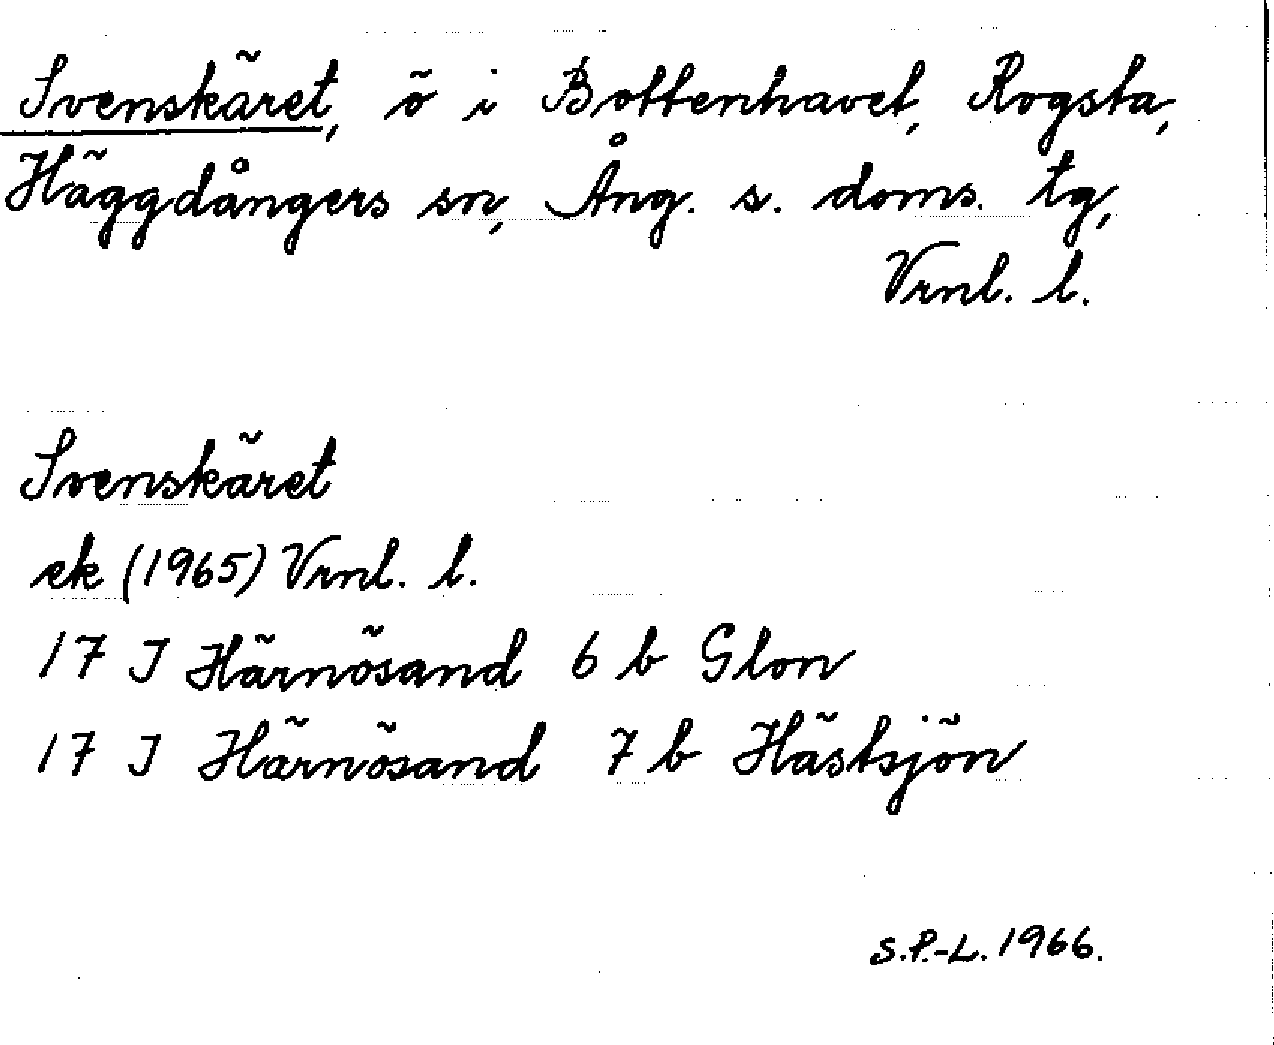 Svenskäret, ö i Bottenhavet, Rogsta,
Häggdångers sn, Ång. s. doms. tg,
Vrnl. l.
Svenskäret
ek (1965) Vrnl. l.
17 J Härnösand 6 b Glon
17 J Härnösand 7 b Hästsjön
S.P.-L. 1966.